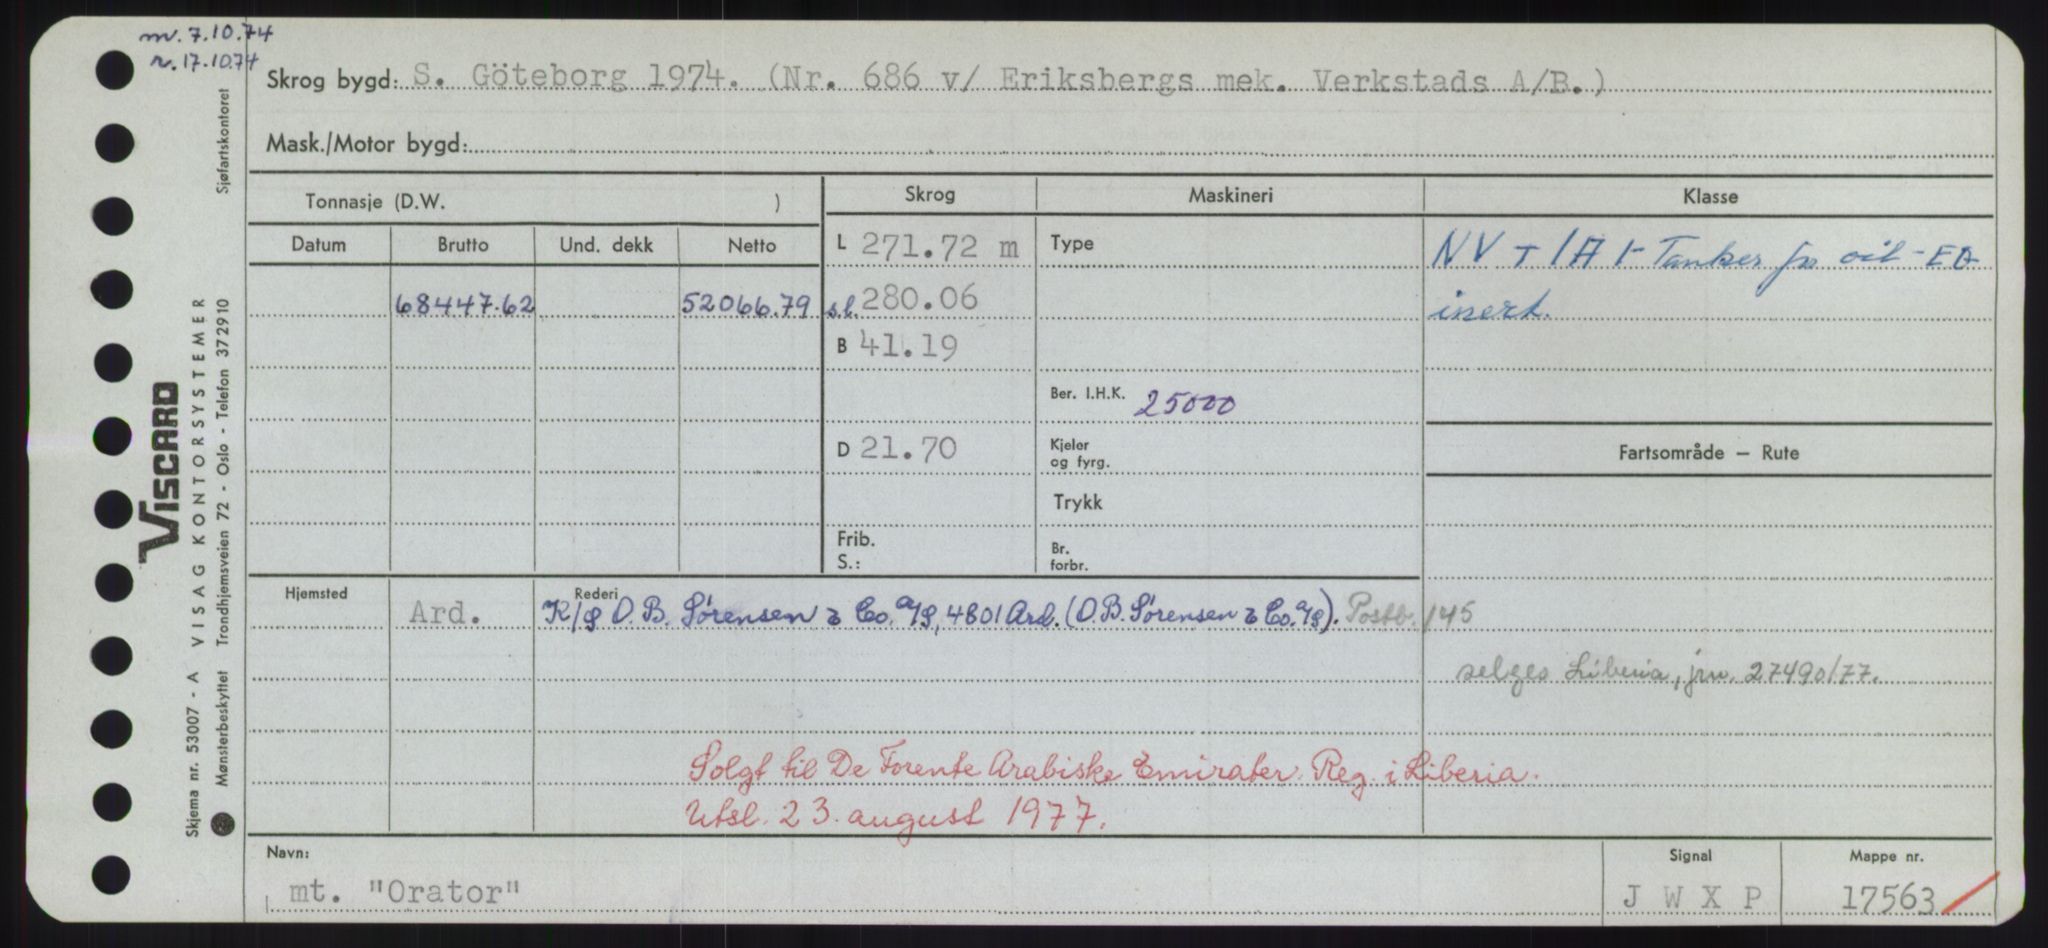 m. 7.10.74
r. 17.10.74
Skrog bygd: S. Göteborg 1974. (Nr. 686 v/ Eriksbergs mek. Verkstads A/B.)
Mask./Motor bygd:
Tonnasje (D.W. )
Skrog
Maskineri
Klasse
Datum
Brutto
Und. dekk
Netto
L 271.72 m
Type
NV + 1A1 - Tanker for oil - EO
68447.62
52066.79
s.l. 280.06
inert.
B 41.19
Ber. I.H.K. 25000
D 21.70
Kjeler
og fyrg.
Fartsområde – Rute
Trykk
Frib.
S.:
Br.
forbr.
Hjemsted
Rederi
Ard.
K/S O. B. Sørensen & Co. A/S, 4801 Ard. (O. B. Sørensen & Co. A/S). Postb. 145
selges Liberia, jnr. 27490/77.
Solgt til De Forente Arabiske Emirater. Reg. i Liberia.
Utsl. 23. august 1977.
Navn:
mt. "Orator"
Signal
J W X P
Mappe nr.
17563
Viscard
VISAG KONTORSYSTEMER
Skjema nr. 53007 - A
Mønsterbeskyttet Trondhjemsveien 72 - Oslo - Telefon 372910
Sjøfartskontoret